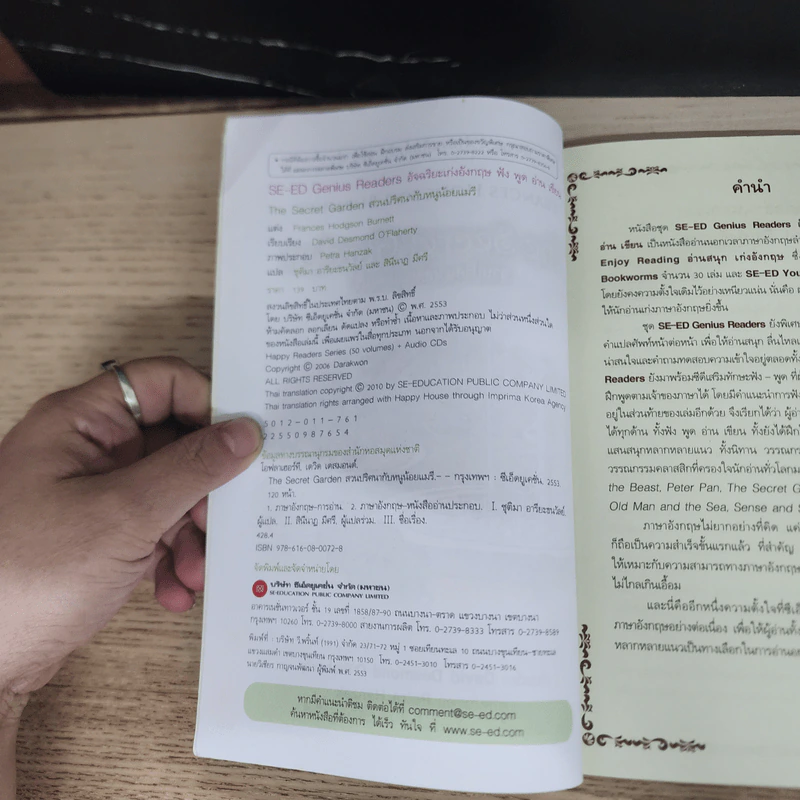 SE-ED Genius Readers อัจฉริยะเก่งอังกฤษ ฟัง พูด อ่าน เขียน
The Secret Garden สวนปริศนากับหนูน้อยแมรี่
แต่ง Frances Hodgson Burnett
เรียบเรียง David Desmond O'Flaherty
ภาพประกอบ Petra Hanzak
แปล ชุติมา อาริยะชนวัลย์ และ สินีนาฏ มีศรี
ราคา 139 บาท
สงวนลิขสิทธิ์ในประเทศไทยตาม พ.ร.บ. ลิขสิทธิ์
โดย บริษัท ซีเอ็ดยูเคชั่น จำกัด (มหาชน) © พ.ศ. 2553
ห้ามคัดลอก ลอกเลียน ดัดแปลง หรือทำซ้ำ เนื้อหาและภาพประกอบ ไม่ว่าส่วนหนึ่งส่วนใด
ของหนังสือเล่มนี้ เพื่อเผยแพร่ในสื่อทุกประเภท นอกจากได้รับอนุญาต
Happy Readers Series (50 volumes) + Audio CDs
Copyright © 2006 Darakwon
ALL RIGHTS RESERVED
Thai translation copyright © 2010 by SE-EDUCATION PUBLIC COMPANY LIMITED
Thai translation rights arranged with Happy House through Imprima Korea Agency
5012-011-761
22550987654
ข้อมูลทางบรรณานุกรมของสำนักหอสมุดแห่งชาติ
โอฟลาเฮอร์ที, เดวิด เดสมอนด์.
The Secret Garden สวนปริศนากับหนูน้อยแมรี่.-- กรุงเทพฯ : ซีเอ็ดยูเคชั่น, 2553.
120 หน้า.
1. ภาษาอังกฤษ-การอ่าน. 2. ภาษาอังกฤษ-หนังสืออ่านประกอบ. I. ชุติมา อาริยะชนวัลย์,
ผู้แปล. II. สินีนาฏ มีศรี, ผู้แปลร่วม. III. ชื่อเรื่อง.
428.4
ISBN 978-616-08-0072-8
จัดพิมพ์และจัดจำหน่ายโดย
บริษัท ซีเอ็ดยูเคชั่น จำกัด (มหาชน)
SE-EDUCATION PUBLIC COMPANY LIMITED
อาคารเนชั่นทาวเวอร์ ชั้น 19 เลขที่ 1858/87-90 ถนนบางนา-ตราด แขวงบางนา เขตบางนา
กรุงเทพฯ 10260 โทร. 0-2739-8000 สายงานการผลิต โทร. 0-2739-8333 โทรสาร 0-2739-8589
พิมพ์ที่ : บริษัท วี.พริ้นท์ (1991) จำกัด 23/71-72 หมู่ 1 ซอยเทียนทะเล 10 ถนนบางขุนเทียน-ชายทะเล
แขวงแสมดำ เขตบางขุนเทียน กรุงเทพฯ 10150 โทร. 0-2451-3010 โทรสาร 0-2451-3014
นายวิเชียร กาญจนพัฒนา ผู้พิมพ์ พ.ศ. 2553
หากมีคำแนะนำติชม ติดต่อได้ที่ comment@se-ed.com
ค้นหาหนังสือที่ต้องการ ได้เร็ว ทันใจ ที่ www.se-ed.com
คำนำ
หนังสือชุด SE-ED Genius Readers
อ่าน เขียน เป็นหนังสืออ่านนอกเวลาภาษาอังกฤษ
Enjoy Reading อ่านสนุก เก่งอังกฤษ
Bookworms จำนวน 30 เล่ม และ SE-ED
โดยยังคงความตั้งใจเดิมไว้อย่างเหนียวแน่น นั่นคือ
ให้นักอ่านเก่งภาษาอังกฤษยิ่งขึ้น
ชุด SE-ED Genius Readers ยังพิเศษ
คำแปลศัพท์หน้าต่อหน้า เพื่อให้อ่านสนุก ลื่นไหล
น่าสนใจและคำถามทดสอบความเข้าใจอยู่ตลอดทั้ง
Readers ยังมาพร้อมซีดีเสริมทักษะฟัง – พูด ที่
ฝึกพูดตามเจ้าของภาษาได้ โดยมีคำแนะนำการฟัง
อยู่ในส่วนท้ายของเล่มอีกด้วย จึงเรียกได้ว่า
ได้ทุกด้าน ทั้งฟัง พูด อ่าน เขียน ทั้งยังได้
แสนสนุกหลากหลายแนว ทั้งนิทาน
วรรณกรรมคลาสสิกที่ครองใจนักอ่านทั่วโลก
the Beast, Peter Pan, The Secret
Old Man and the Sea, Sense and
ภาษาอังกฤษไม่ยากอย่างที่คิด
ก็ถือเป็นความสำเร็จขั้นแรกแล้ว ที่สำคัญ
ให้เหมาะกับความสามารถทางภาษาอังกฤษ
ไม่ไกลเกินเอื้อม
และนี่คืออีกหนึ่งความตั้งใจที่
ภาษาอังกฤษอย่างต่อเนื่อง เพื่อให้ผู้อ่าน
หลากหลายแนวเป็นทางเลือกในการอ่าน